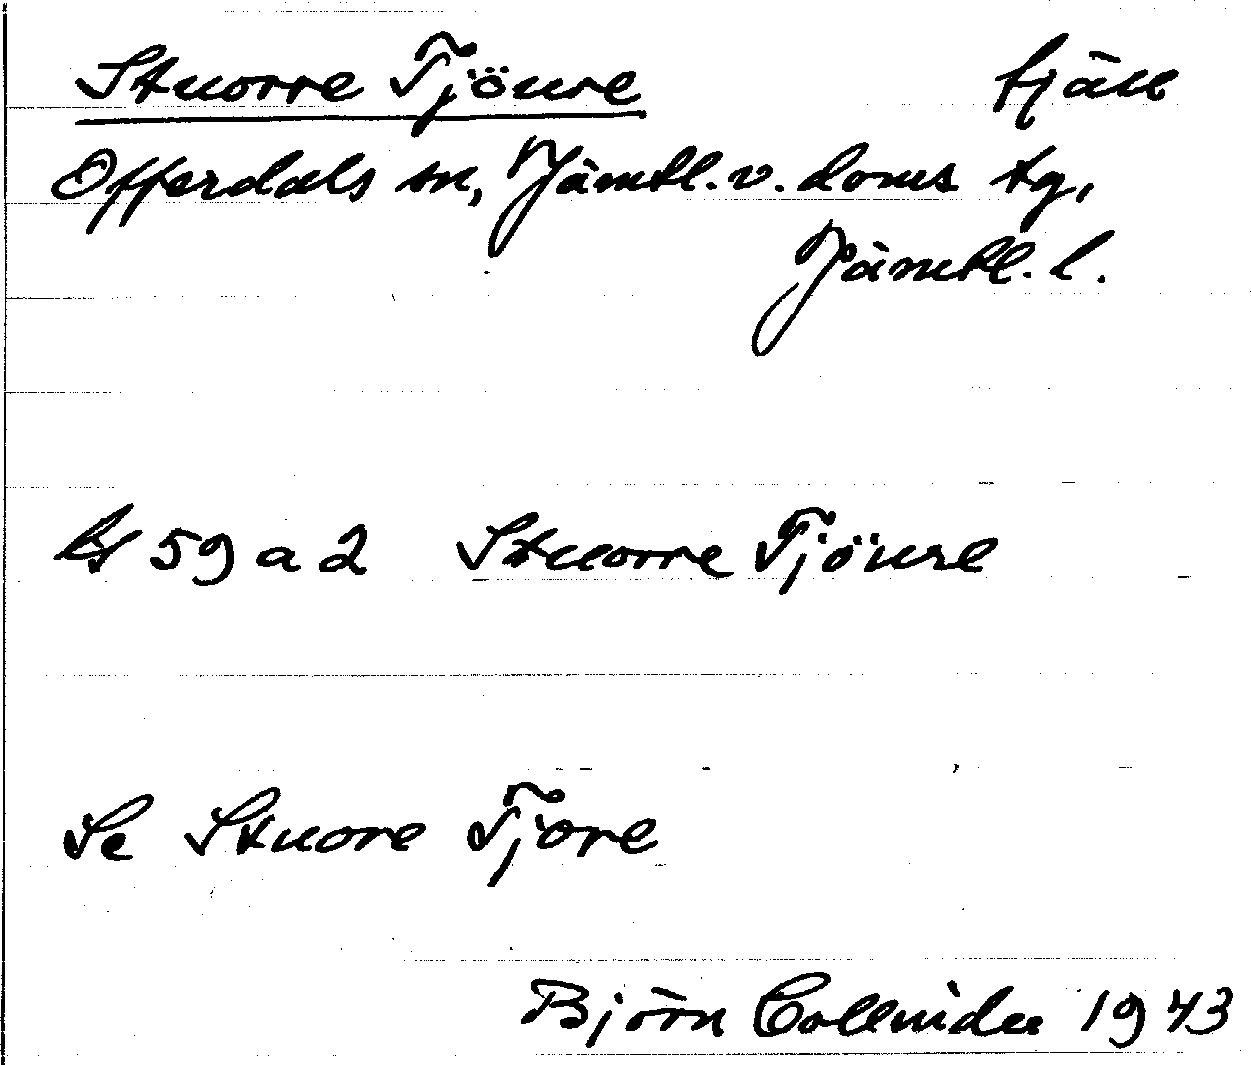 Stuorre Tjöure fjäll
Offerdals sn, Jämtl. v. doms tg,
Jämtl. l.
59 a 2 Stuorre Tjöure
Se Stuore Tjore
Björn Collinder 1943